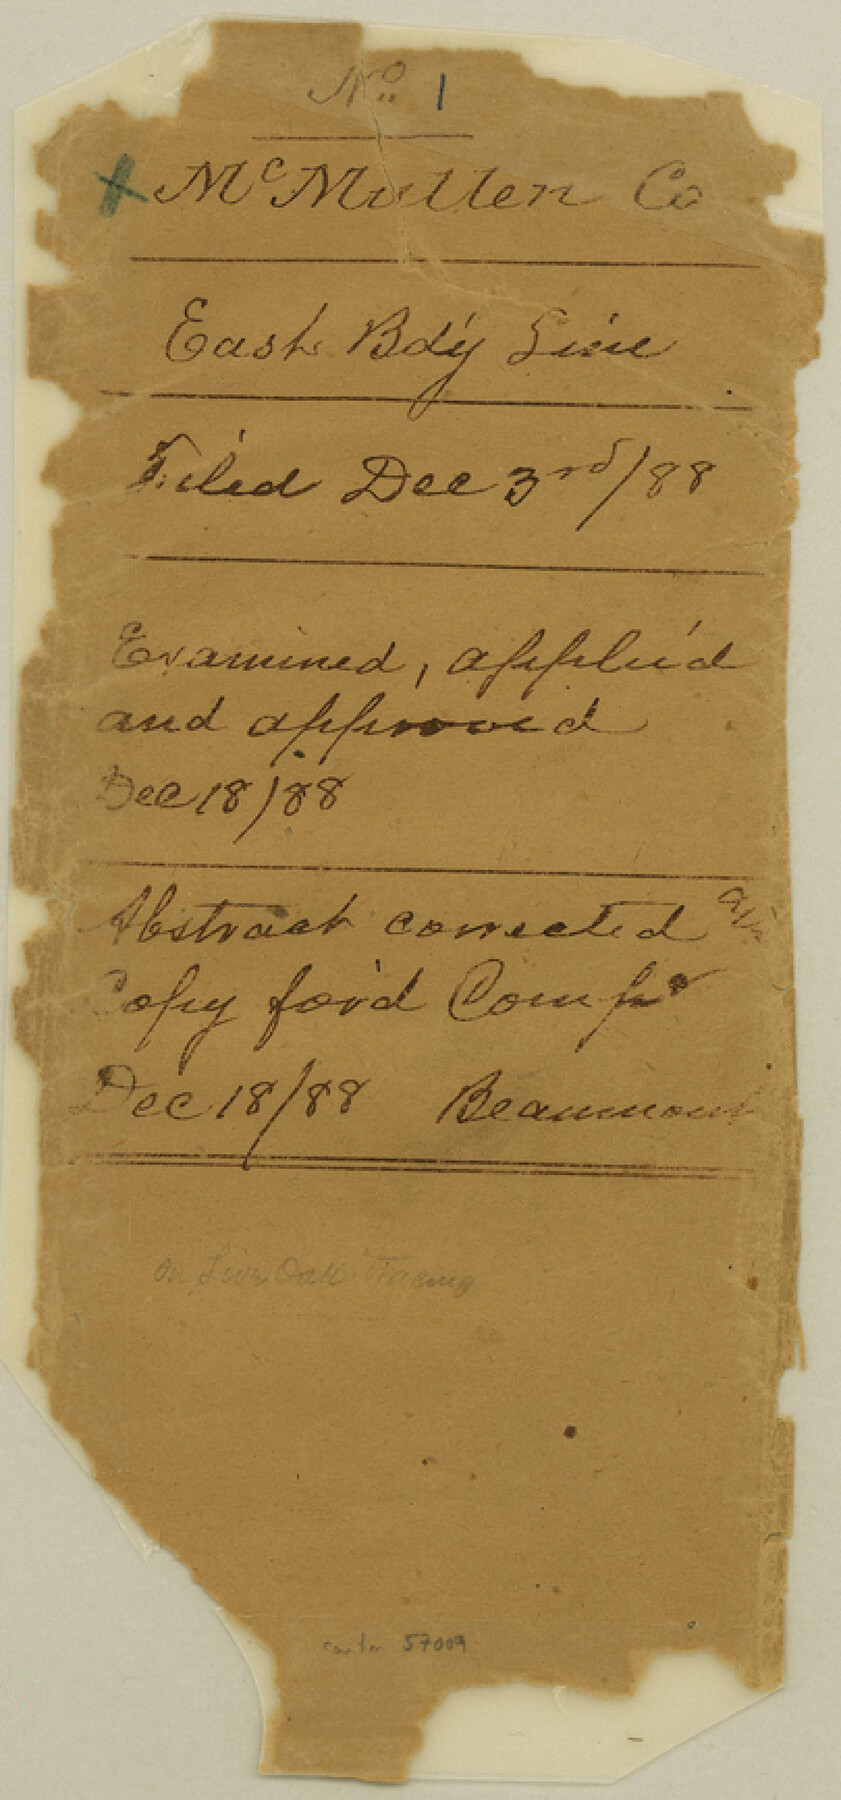 No. 1
McMullen Co
East Bdy Line
Filed Dec 3rd/88
Examined, appli'd
and approved
Dec 18/88
Abstract corrected
Copy for'd Comr
Dec 18/88 Beaumont
on Live Oak Tracing
counter 57009